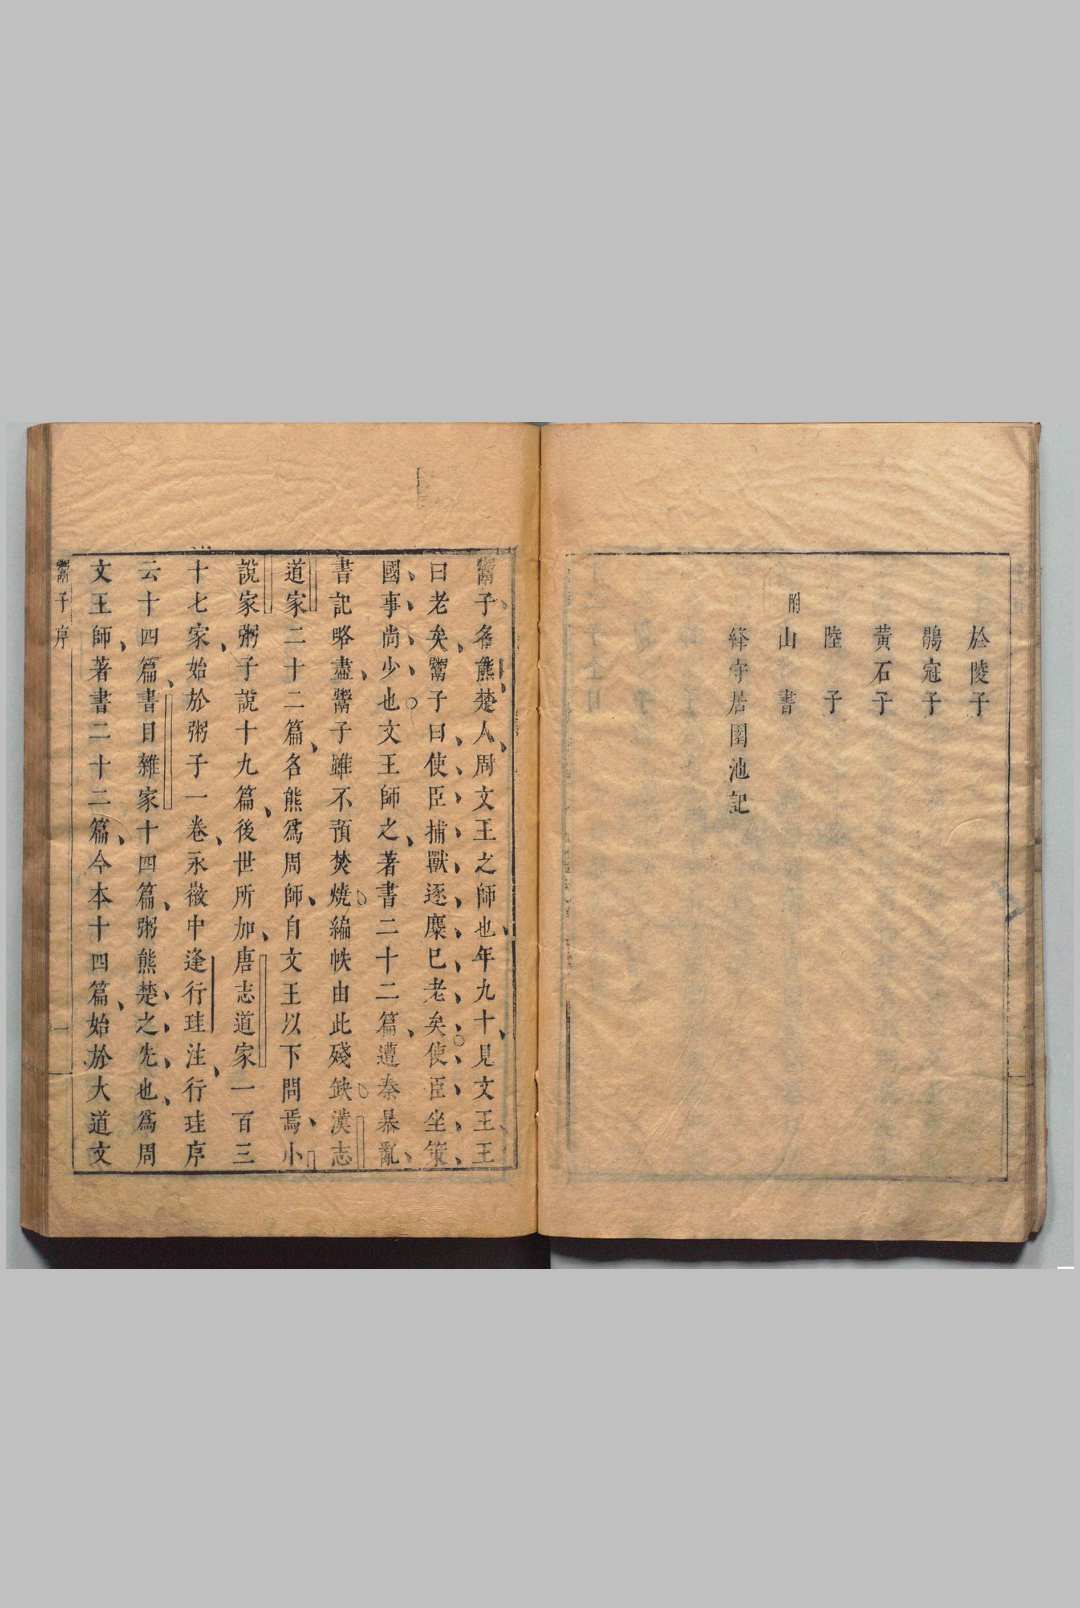 於陵子
鶡冠子
黃石子
陸子
附
山書
絳守居園池記
鬻子名熊楚人周文王之師也年九十見文王王
曰老矣鬻子曰使臣捕獸逐麋已老矣使臣坐策
國事尚少也文王師之著書二十二篇遭秦暴亂
書記略盡鬻子雖不預焚燒編帙由此殘缺漢志
道家二十二篇名熊爲周師自文王以下問焉小
說家粥子說十九篇後世所加唐志道家一百三
十七家始於粥子一卷永徽中逢行珪注行珪序
云十四篇書目雜家十四篇粥熊楚之先也爲周
文王師著書二十二篇今本十四篇始於大道文
鬻子序